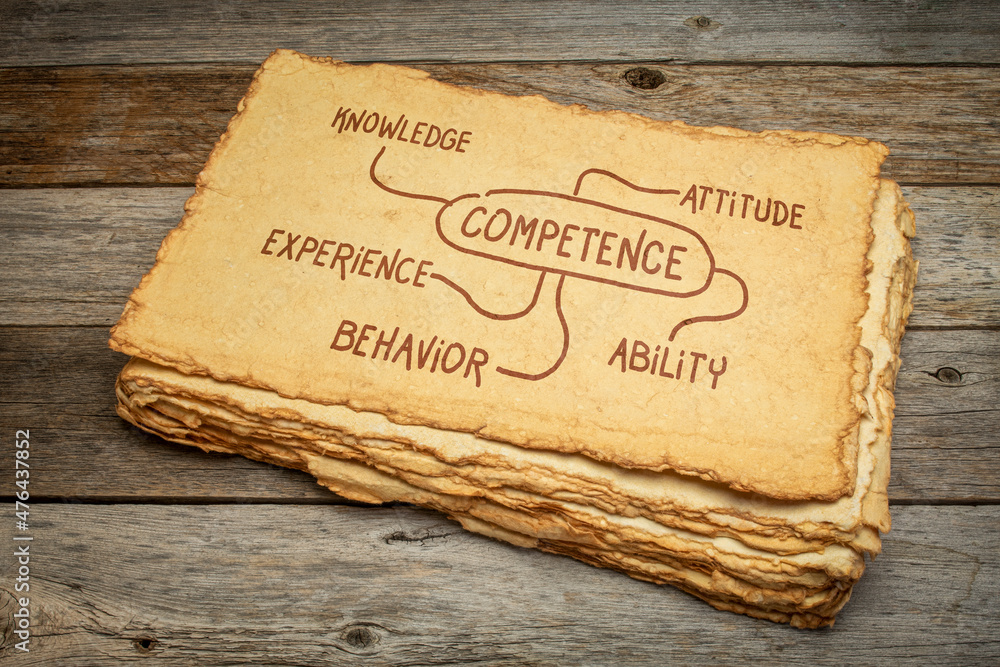 KNOWLEDGE
ATTITUDE
COMPETENCE
EXPERIENCE
BEHAVIOR
ABILITY
Adobe Stock | #476437852